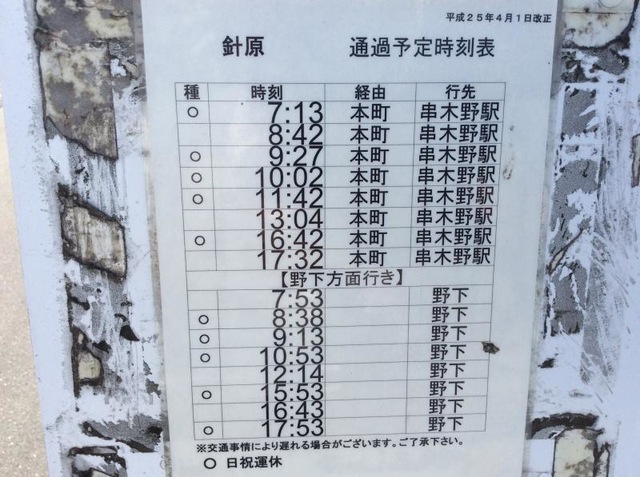 平成25年4月1日改正
針原 通過予定時刻表
種 時刻 経由 行先
○ 7:13 本町 串木野駅
8:42 本町 串木野駅
○ 9:27 本町 串木野駅
○ 10:02 本町 串木野駅
○ 11:42 本町 串木野駅
13:04 本町 串木野駅
○ 16:42 本町 串木野駅
17:32 本町 串木野駅
【野下方面行き】
7:53 野下
○ 8:38 野下
○ 9:13 野下
○ 10:53 野下
12:14 野下
○ 15:53 野下
16:43 野下
○ 17:53 野下
※交通事情により遅れる場合がございます。ご了承下さい。
○ 日祝運休